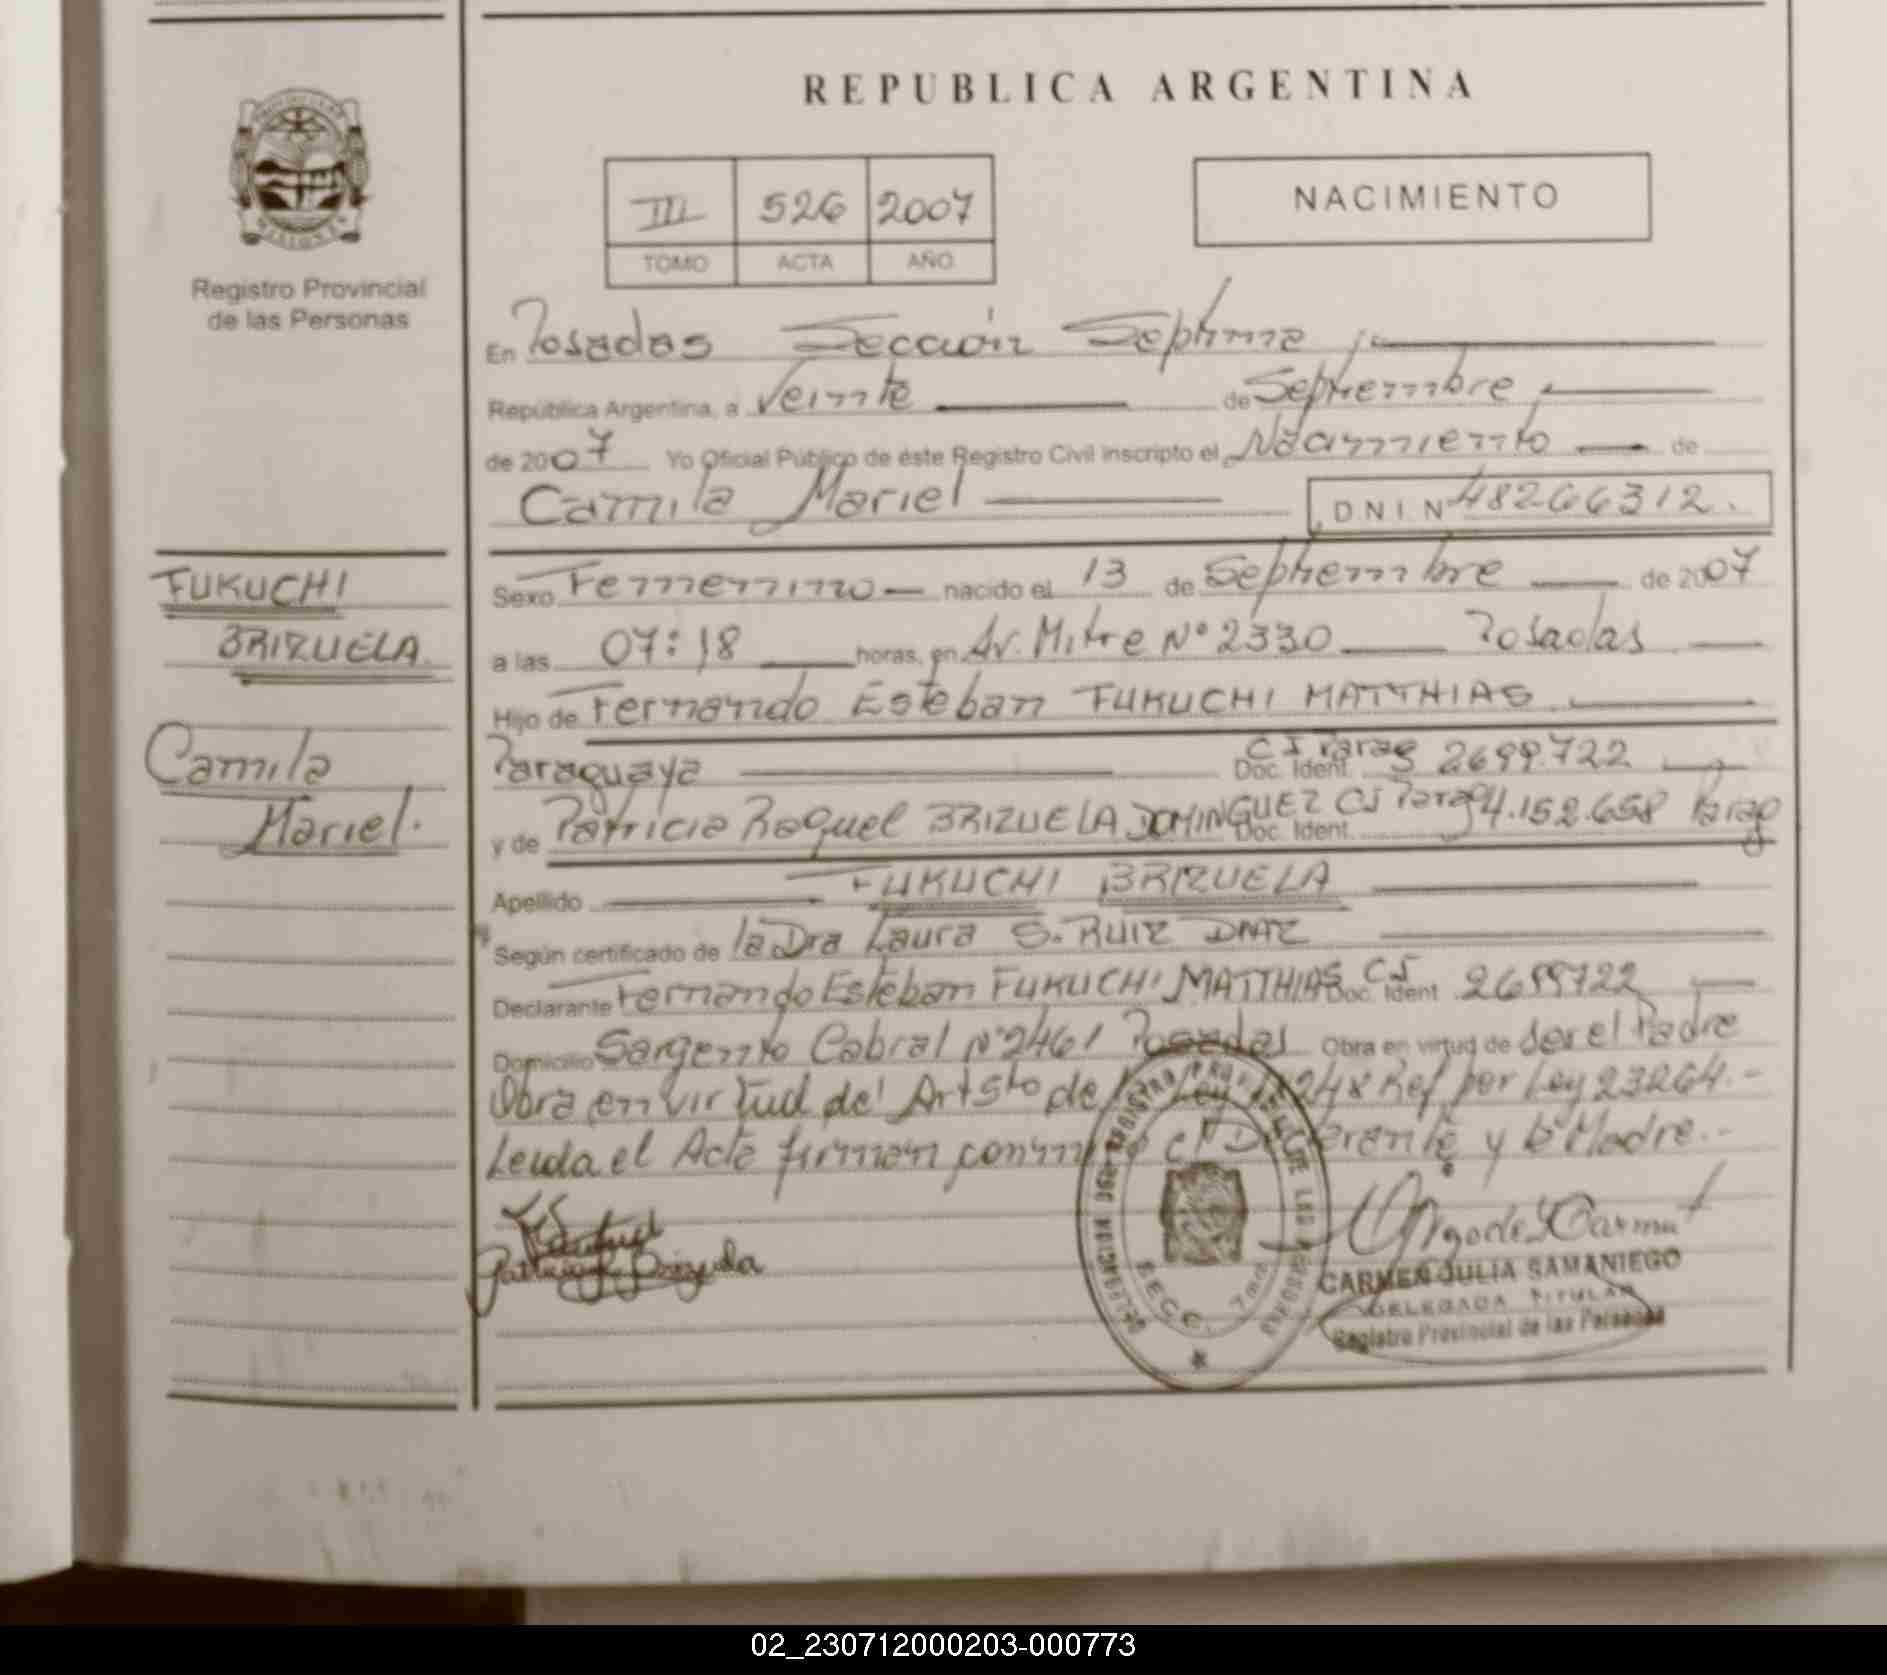 REPUBLICA ARGENTINA
III 526 2007
TOMO ACTA AÑO
NACIMIENTO
Registro Provincial
de las Personas
En Posadas Sección Septima
República Argentina, a Veinte de Septiembre
de 2007 Yo Oficial Público de éste Registro Civil inscripto el Nacimiento de
Camila Mariel DNI N 48266312.
FUKUCHI
BRIZUELA
Camila
Mariel.
Sexo Femenino nacido el 13 de Septiembre de 2007
a las 07:18 horas, en Av. Mitre Nº 2330 Posadas
Hijo de Fernando Esteban FUKUCHI MATTHIAS
Paraguaya Doc. Ident. CI Parag 2699.722
y de Patricia Raquel BRIZUELA DOMINGUEZ Doc. Ident. CI Parag 4.152.658 Parag
Apellido FUKUCHI BRIZUELA
Según certificado de la Dra Laura S. RUIZ DIAZ
Declarante Fernando Esteban FUKUCHI MATTHIAS Doc. Ident. CI 2699722
Domicilio Sargento Cabral Nº 2461 Posadas Obra en virtud de ser el Padre
Obra en virtud del Art 5to de la Ley 18248 Ref por Ley 23264.-
Leida el Acta firman conmigo el Declarante y la Madre.-
SECC. 7ma
CARMEN JULIA SAMANIEGO
DELEGADA TITULAR
Registro Provincial de las Personas
02_230712000203-000773